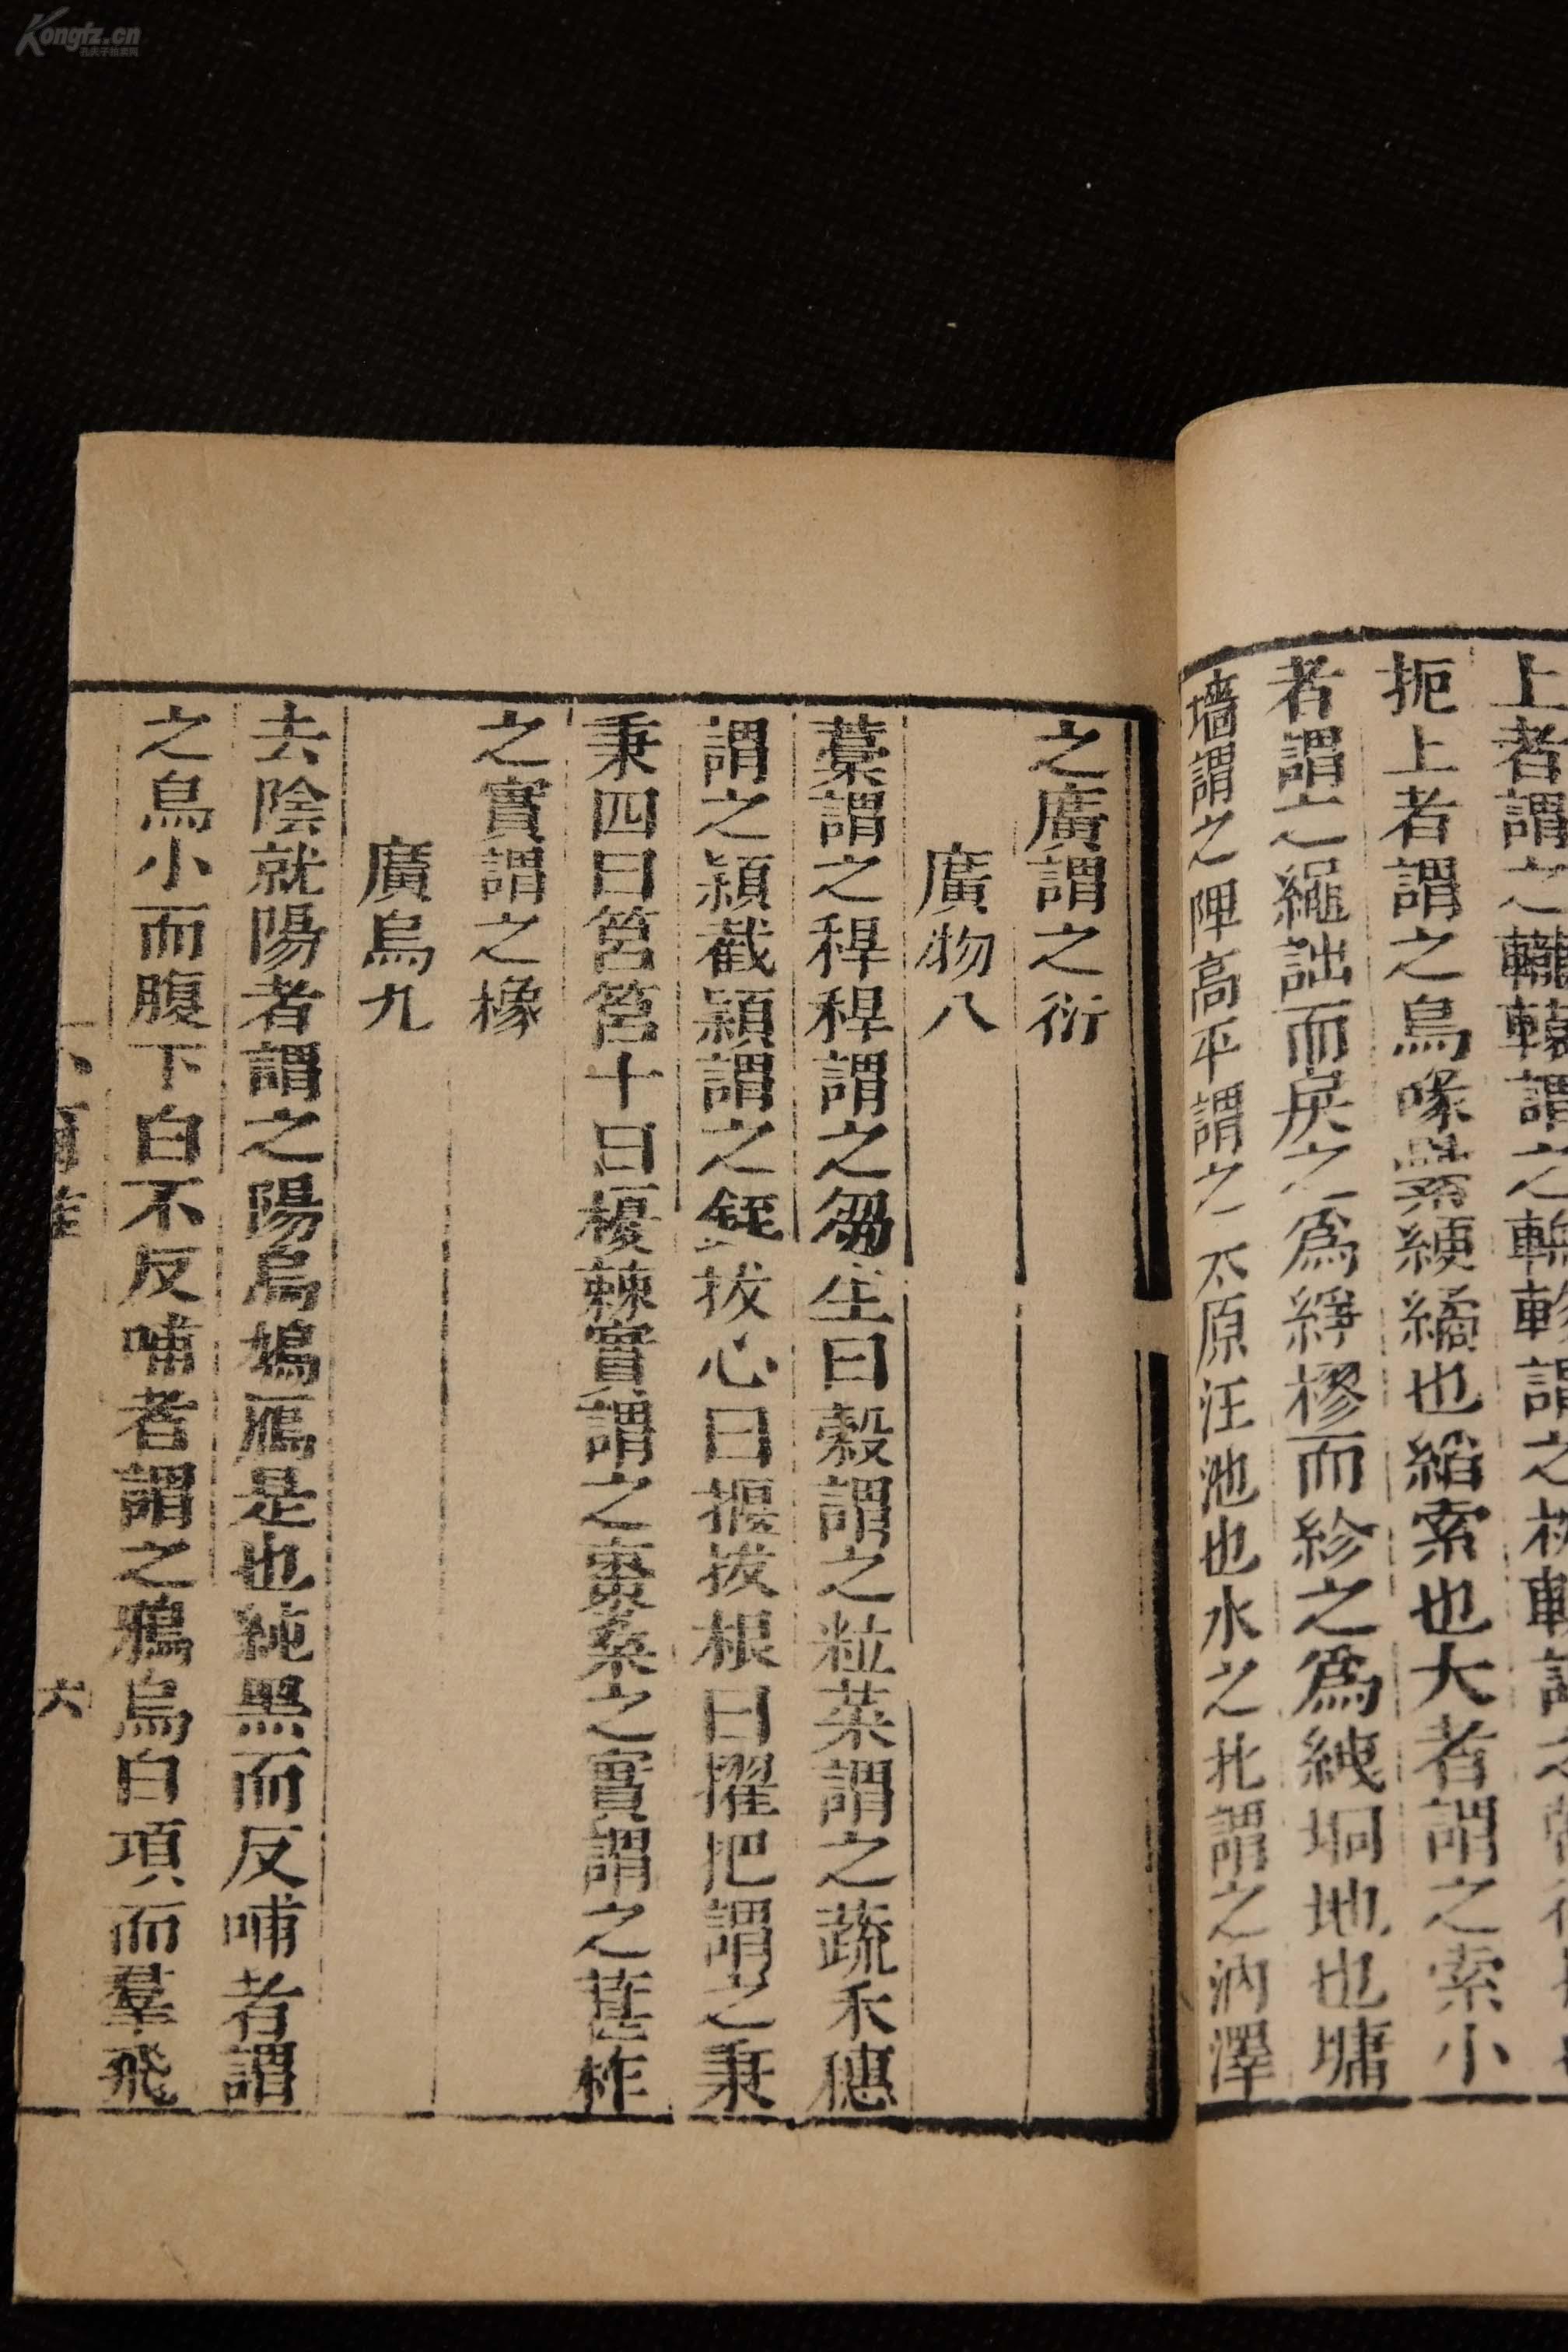 Kongfz.cn
孔夫子拍卖网
上者謂之
扼上者謂之烏啄
綆繘也綯索也大者謂之索小
者謂之繩詘而戾之爲綪樛而紾之爲
坰地也墉
墻謂之陴高平謂之太原汪池也水之北謂之汭澤
之廣謂之衍
廣物八
藁謂之稈稈謂之芻生曰穀謂之粒菜謂之蔬禾穗
謂之穎截穎謂之銍拔心曰揠拔根曰擢把謂之秉
秉四曰筥筥十曰稯棘實謂之棗桑之實謂之葚柞
之實謂之橡
廣烏九
去陰就陽者謂之陽烏鳩鴈是也純黑而反哺者謂
之烏小而腹下白不反哺者謂之鴉烏白項而羣飛
六